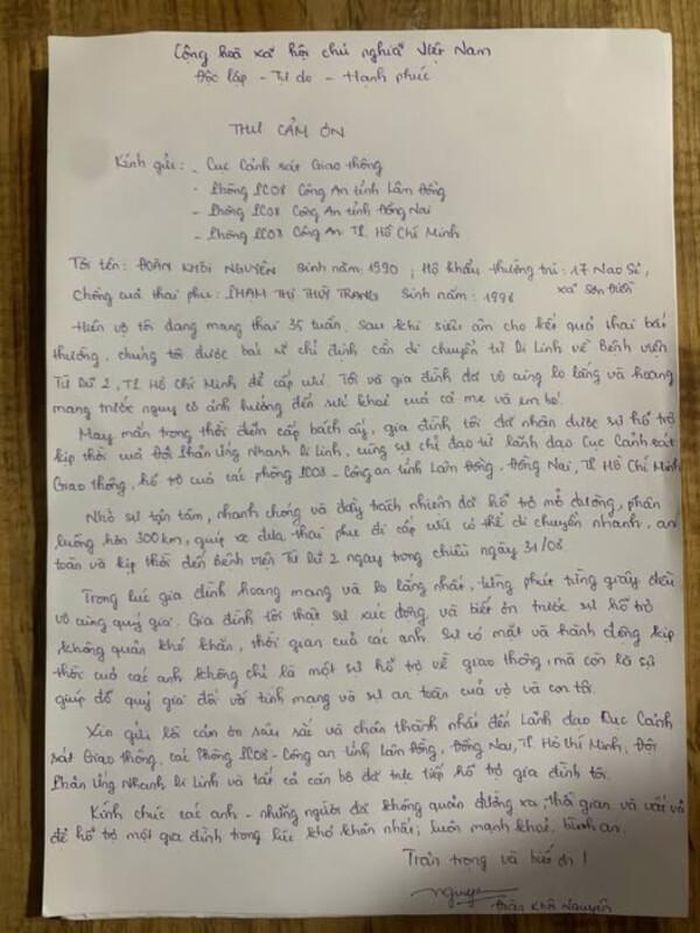 Cộng hoà xã hội chủ nghĩa Việt Nam
Độc lập - Tự do - Hạnh phúc
THƯ CẢM ƠN
Kính gửi: - Cục Cảnh sát Giao thông
- Phòng PC08 Công An tỉnh Lâm Đồng
- Phòng PC08 Công An tỉnh Đồng Nai
- Phòng PC08 Công An TP. Hồ Chí Minh
Tôi tên: ĐOÀN KHÔI NGUYÊN Sinh năm: 1990; Hộ khẩu thường trú: 17 Nao Sẻ,
xã Sơn Điền
Chồng của thai phụ: PHẠM THỊ THUỲ TRANG Sinh năm: 1996
Hiện vợ tôi đang mang thai 35 tuần. Sau khi siêu âm cho kết quả thai bất
thường, chúng tôi được bác sĩ chỉ định cần di chuyển từ Di Linh về Bệnh viện
Từ Dũ 2, TP. Hồ Chí Minh để cấp cứu. Tôi và gia đình đã vô cùng lo lắng và hoang
mang trước nguy cơ ảnh hưởng đến sức khoẻ của cả mẹ và em bé.
May mắn trong thời điểm cấp bách ấy, gia đình tôi đã nhận được sự hỗ trợ
kịp thời của Đội Phản Ứng Nhanh Di Linh, cùng sự chỉ đạo từ lãnh đạo Cục Cảnh sát
Giao thông, hỗ trợ của các phòng PC08 - Công an tỉnh Lâm Đồng, Đồng Nai, TP Hồ Chí Minh
Nhờ sự tận tâm, nhanh chóng và đầy trách nhiệm đã hỗ trợ mở đường, phân
luồng hơn 300km, giúp xe đưa thai phụ đi cấp cứu có thể di chuyển nhanh, an
toàn và kịp thời đến Bệnh viện Từ Dũ 2 ngay trong chiều ngày 31/08
Trong lúc gia đình hoang mang và lo lắng nhất, từng phút từng giây đều
vô cùng quý giá. Gia đình tôi thật sự xúc động và biết ơn trước sự hỗ trợ
không quản khó khăn, thời gian của các anh. Sự có mặt và hành động kịp
thời của các anh không chỉ là một sự hỗ trợ về giao thông, mà còn là sự
giúp đỡ quý giá đối với tính mạng và sự an toàn của vợ và con tôi.
Xin gửi lời cảm ơn sâu sắc và chân thành nhất đến Lãnh đạo Cục Cảnh
sát Giao thông, các Phòng PC08 - Công an tỉnh Lâm Đồng, Đồng Nai, TP Hồ Chí Minh, Đội
Phản Ứng Nhanh Di Linh và tất cả cán bộ đã trực tiếp hỗ trợ gia đình tôi.
Kính chúc các anh - những người đã không quản đường xa, thời gian và vất vả
để hỗ trợ một gia đình trong lúc khó khăn nhất; luôn mạnh khoẻ, bình an.
Trân trọng và biết ơn!
Nguyên
Đoàn Khôi Nguyên